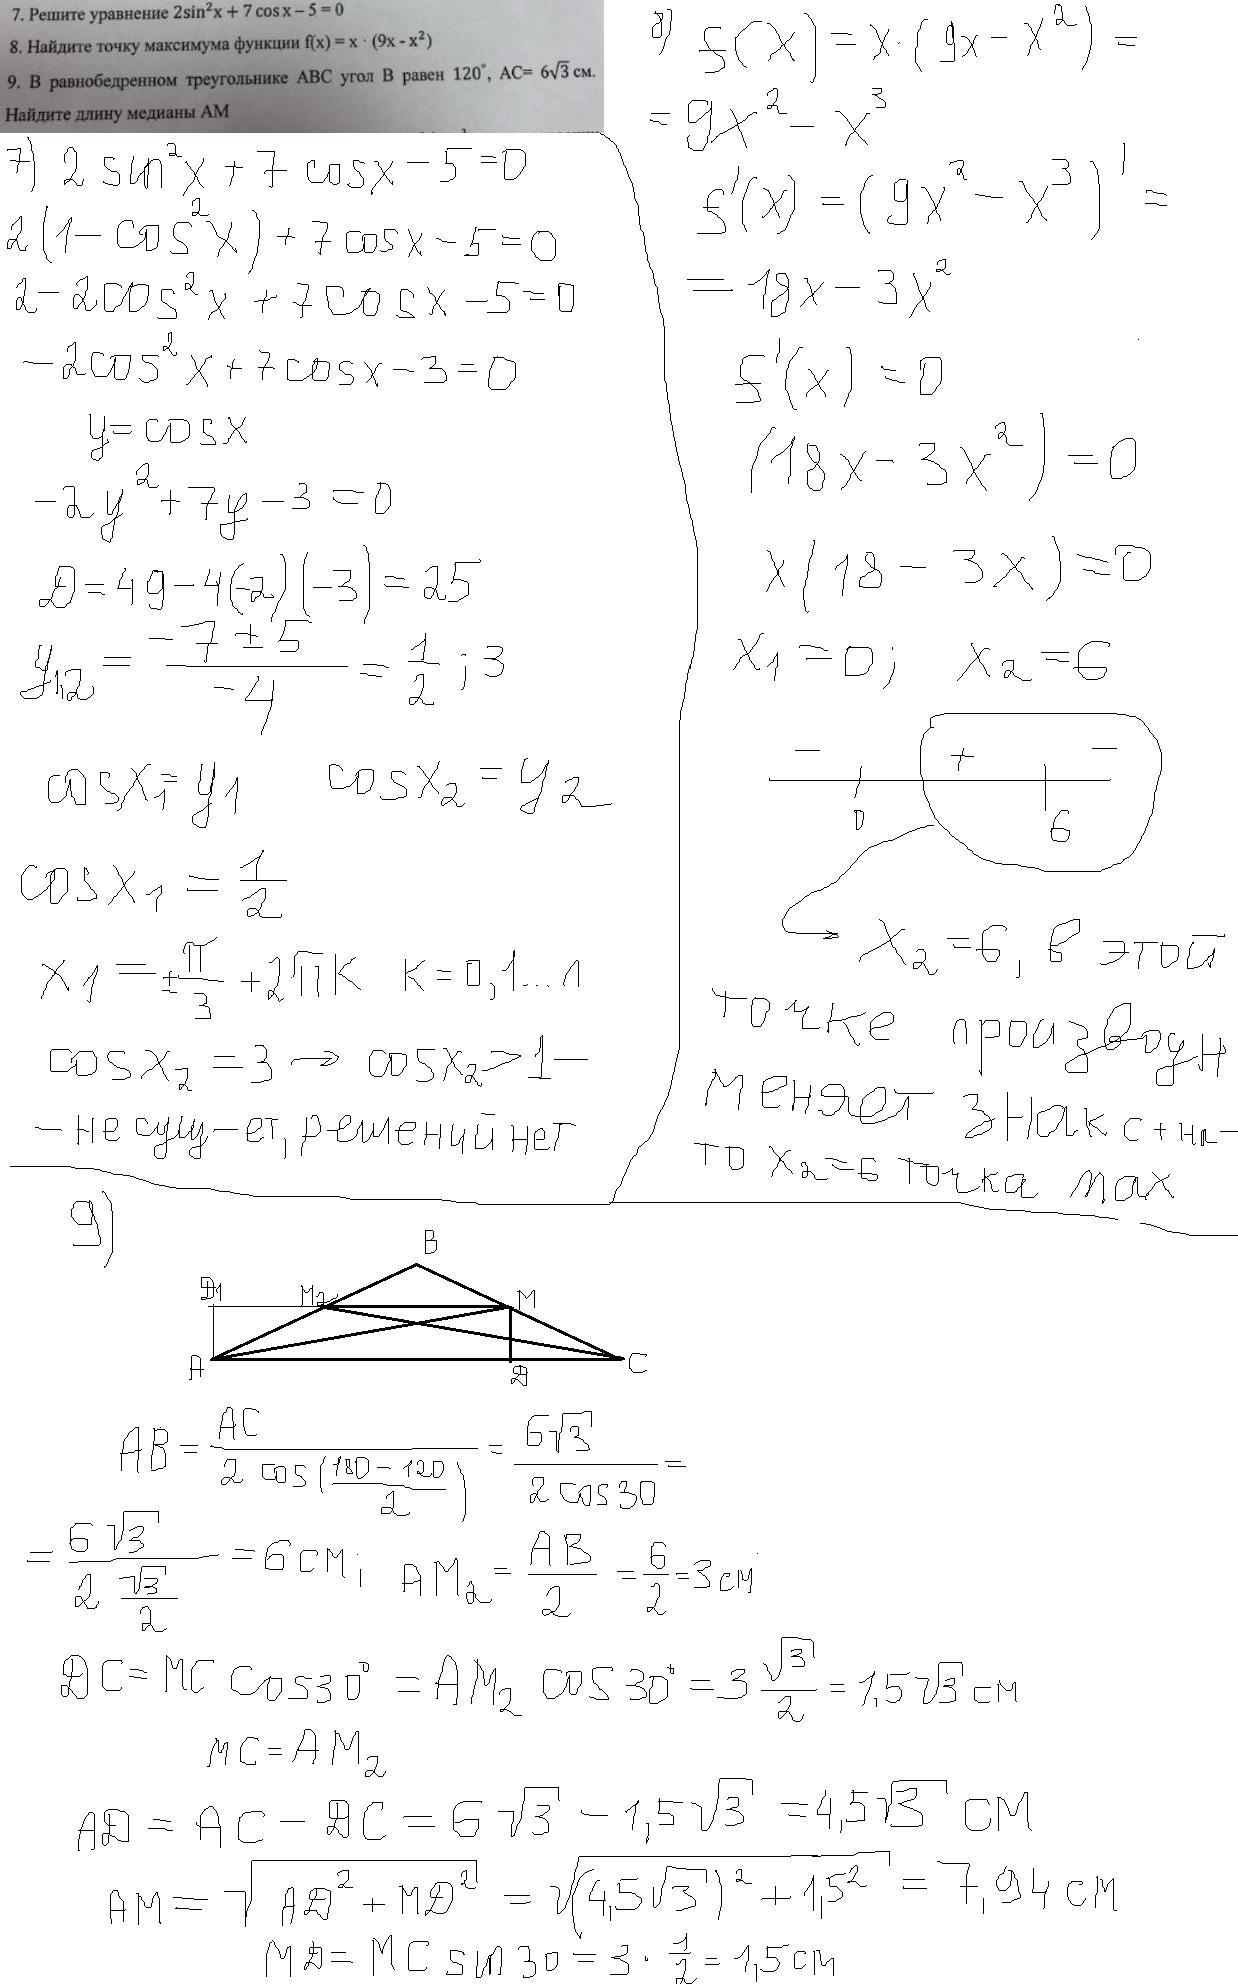 7. Решите уравнение 2sin²x + 7 cos x – 5 = 0
8. Найдите точку максимума функции f(x) = x · (9x - x²)
9. В равнобедренном треугольнике АВС угол В равен 120°, АС= 6√3 см.
Найдите длину медианы АМ
7) 2 sin²x + 7 cosx – 5 = 0
2(1 – cos²x) + 7 cosx – 5 = 0
2 – 2cos²x + 7cosx – 5 = 0
– 2cos²x + 7cosx – 3 = 0
y = cosx
–2y² + 7y – 3 = 0
D = 49 – 4(-2)(-3) = 25
y1,2 = (–7 ± 5)/(–4) = 1/2 ; 3
cosx1 = y1 cosx2 = y2
cosx1 = 1/2
x1 = ± π/3 + 2πk k = 0,1...n
cosx2 = 3 → cosx2 > 1 –
– не сущ-ет, решений нет
8) f(x) = x·(9x – x²) =
= 9x² – x³
f'(x) = (9x² – x³)' =
= 18x – 3x²
f'(x) = 0
(18x – 3x²) = 0
x(18 – 3x) = 0
x1 = 0; x2 = 6
– + –
0 6
x2 = 6, в этой
точке производн
меняет знак с + на –
то x2 = 6 точка max
9)
B
D1 M2 M
A D C
AB = AC/(2 cos((180 – 120)/2)) = 6√3/(2 cos30) =
= 6√3/(2 √3/2) = 6 см; AM2 = AB/2 = 6/2 = 3 см
DC = MC cos30° = AM2 cos30° = 3 √3/2 = 1,5√3 см
MC = AM2
AD = AC – DC = 6√3 – 1,5√3 = 4,5√3 см
AM = √(AD² + MD²) = √((4,5√3)² + 1,5²) = 7,94 см
MD = MC sin30 = 3 · 1/2 = 1,5 см